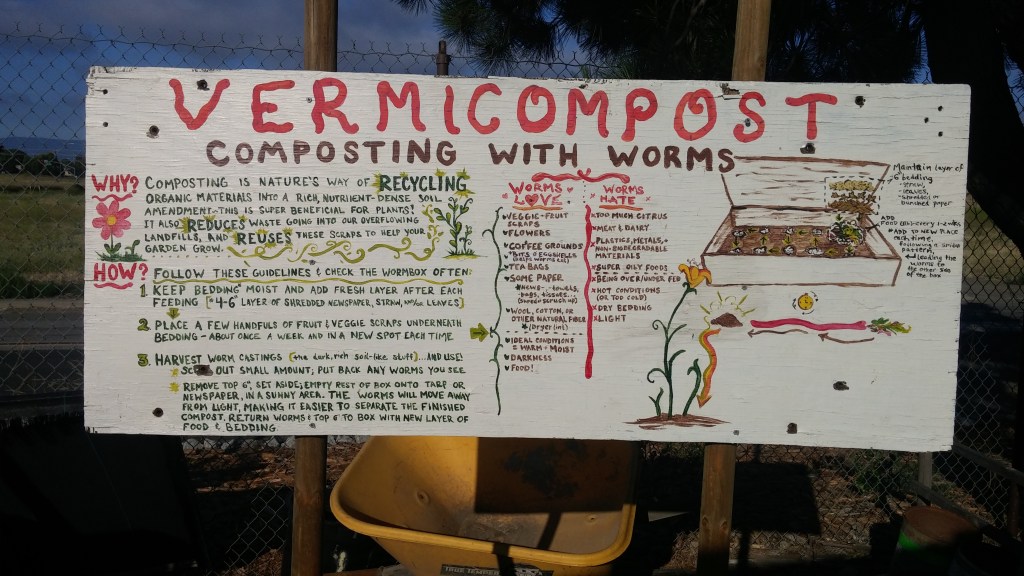 VERMICOMPOST
COMPOSTING WITH WORMS
WHY? COMPOSTING IS NATURE'S WAY OF RECYCLING
ORGANIC MATERIALS INTO A RICH, NUTRIENT-DENSE SOIL
AMENDMENT-THIS IS SUPER BENEFICIAL FOR PLANTS!
IT ALSO REDUCES WASTE GOING INTO OUR OVERFLOWING
LANDFILLS, AND REUSES THESE SCRAPS TO HELP YOUR
GARDEN GROW.
HOW? FOLLOW THESE GUIDELINES & CHECK THE WORMBOX OFTEN:
1. KEEP BEDDING* MOIST AND ADD FRESH LAYER AFTER EACH
FEEDING [*4-6" LAYER OF SHREDDED NEWSPAPER, STRAW, and/or LEAVES]
2. PLACE A FEW HANDFULS OF FRUIT & VEGGIE SCRAPS UNDERNEATH
BEDDING - ABOUT ONCE A WEEK AND IN A NEW SPOT EACH TIME
3. HARVEST WORM CASTINGS (the dark, rich soil-like stuff)...AND USE!
OUT SMALL AMOUNT; PUT BACK ANY WORMS YOU SEE
REMOVE TOP 6", SET ASIDE; EMPTY REST OF BOX ONTO TARP OR
NEWSPAPER, IN A SUNNY AREA. THE WORMS WILL MOVE AWAY
FROM LIGHT, MAKING IT EASIER TO SEPARATE THE FINISHED
COMPOST. RETURN WORMS & TOP 6" TO BOX WITH NEW LAYER OF
FOOD & BEDDING.
WORMS
LOVE
VEGGIE-FRUIT
SCRAPS
FLOWERS
COFFEE GROUNDS
BITS OF EGGSHELLS
TEA BAGS
SOME PAPER
NEWS-, towels,
bags, tissues...
WOOL, COTTON, OR
OTHER NATURAL FIBER
(Dryer lint)
IDEAL CONDITIONS
= WARM + MOIST
DARKNESS
FOOD!
WORMS
HATE
TOO MUCH CITRUS
MEAT & DAIRY
PLASTICS, METALS, +
NON-BIODEGRADABLE
MATERIALS
SUPER OILY FOODS
BEING OVER/UNDER FED
HOT CONDITIONS
(OR TOO COLD)
DRY BEDDING
LIGHT
Maintain layer of
6" bedding
-straw,
-leaves,
-shredded or
bunched paper
ADD
Food (every 1-2 weeks
ADD TO NEW PLACE
each time,
following a similar
pattern,
Leading the
worms to
the other side
of the box
TRUE TEMPER